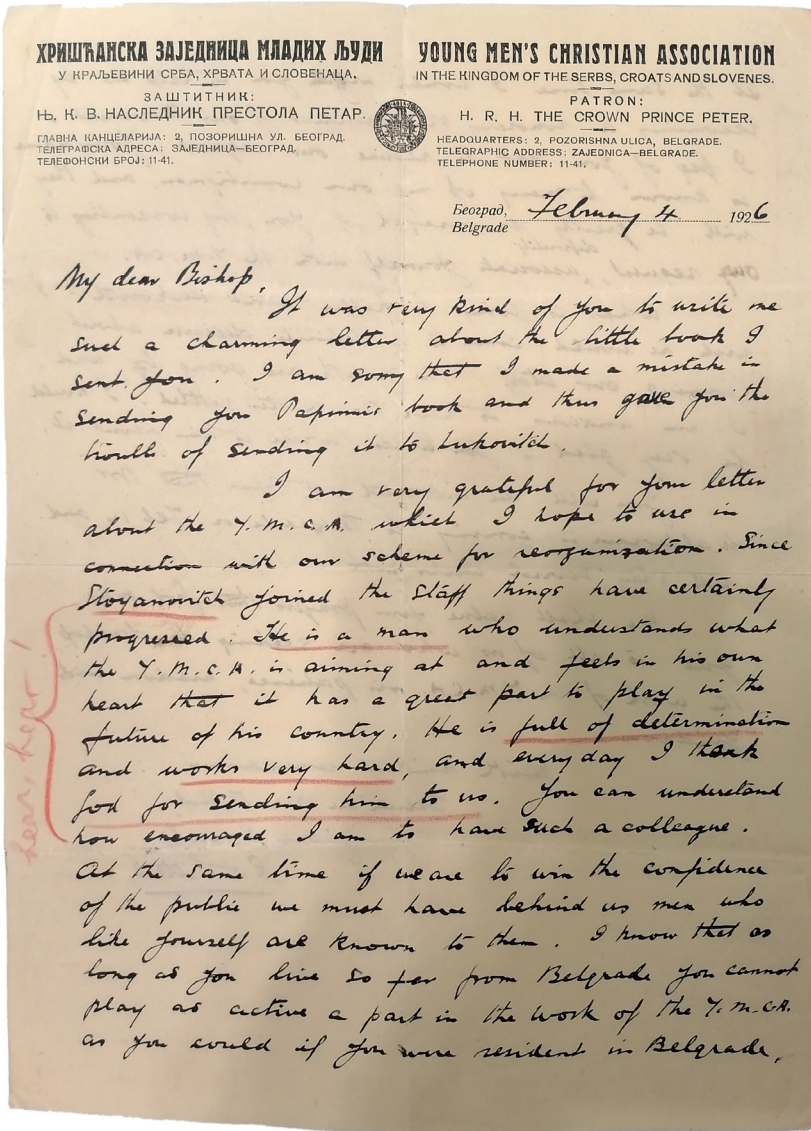 ХРИШЋАНСКА ЗАЈЕДНИЦА МЛАДИХ ЉУДИ
У КРАЉЕВИНИ СРБА, ХРВАТА И СЛОВЕНАЦА.
ЗАШТИТНИК:
Њ. К. В. НАСЛЕДНИК ПРЕСТОЛА ПЕТАР.
ГЛАВНА КАНЦЕЛАРИЈА: 2, ПОЗОРИШНА УЛ. БЕОГРАД.
ТЕЛЕГРАФСКА АДРЕСА: ЗАЈЕДНИЦА—БЕОГРАД.
ТЕЛЕФОНСКИ БРОЈ: 11-41.
YOUNG MEN'S CHRISTIAN ASSOCIATION
IN THE KINGDOM OF THE SERBS, CROATS AND SLOVENES.
PATRON:
H. R. H. THE CROWN PRINCE PETER.
HEADQUARTERS: 2, POZORISHNA ULICA, BELGRADE.
TELEGRAPHIC ADDRESS: ZAJEDNICA—BELGRADE.
TELEPHONE NUMBER: 11-41.
Београд, February 4 1926
Belgrade
My dear Bishop,
It was very kind of you to write me
such a charming letter about the little book I
sent you. I am sorry that I made a mistake in
sending you Papini's book and thus gave you the
trouble of sending it to Lukovitch.
I am very grateful for your letter
about the Y.M.C.A. which I hope to use in
connection with our scheme for reorganization. Since
Stoyanovitch joined the staff things have certainly
progressed. He is a man who understands what
the Y.M.C.A. is aiming at and feels in his own
heart that it has a great part to play in the
future of his country. He is full of determination
and works very hard, and everyday I thank
God for sending him to us. You can understand
how encouraged I am to have such a colleague.
At the same time if we are to win the confidence
of the public we must have behind us men who
like yourself are known to them. I know that as
long as you live so far from Belgrade you cannot
play as active a part in the work of the Y.M.C.A.
as you could if you were resident in Belgrade,
hear, hear!